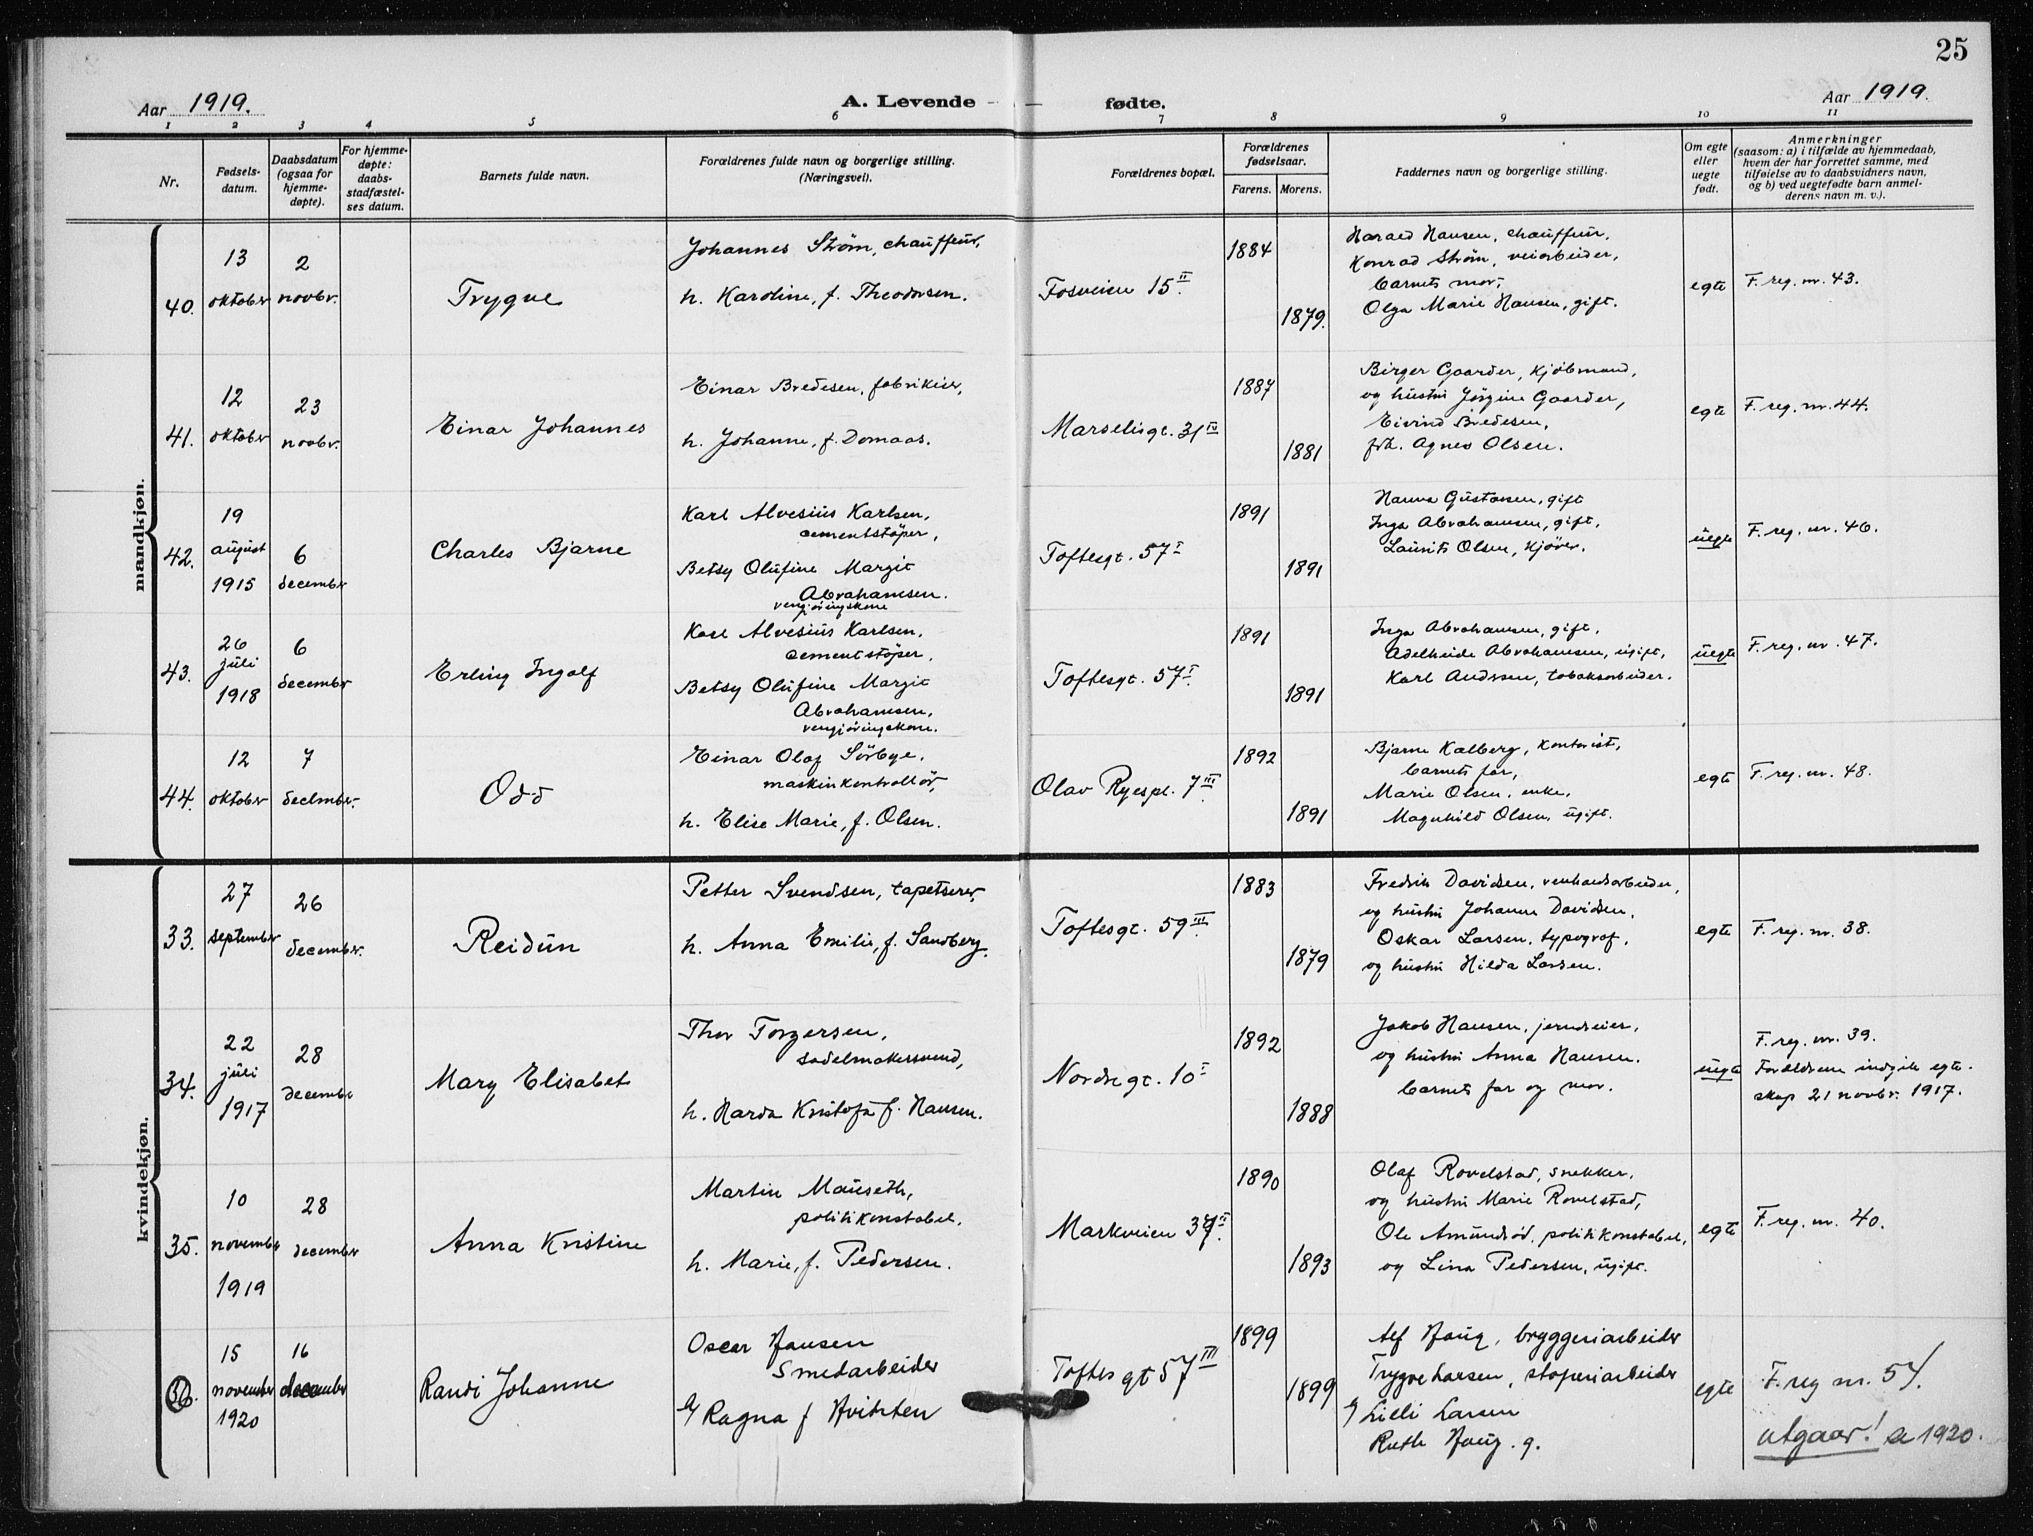 25
Aar 1919.
A. Levende fødte.
Aar 1919.
1 2 3 4 5 6 7 8 9 10 11
Nr.
Fødsels-
datum.
Daabsdatum
(ogsaa for
hjemme-
døpte).
For hjemme-
døpte:
daabs-
stadfæstel-
ses datum.
Barnets fulde navn.
Forældrenes fulde navn og borgerlige stilling.
(Næringsvei).
Forældrenes bopæl.
Forældrenes
fødselsaar.
Farens. Morens.
Faddernes navn og borgerlige stilling.
Om egte
eller
uegte
født.
Anmerkninger
(saasom: a) i tilfælde av hjemmedaab,
hvem der har forrettet samme, med
tilføielse av to daabsvidners navn,
og b) ved uegtefødte barn anmel-
derens navn m. v.).
mandkjøn.
40.
13
oktober
2
novbr.
Trygve
Johannes Strøm, chauffeur,
h. Karoline, f. Theodorsen.
Fosveien 15 II.
1884
1879.
Harald Hansen, chauffeur,
Konrad Strøm, veiarbeider,
barnets mor,
Olga Marie Hansen, gift.
egte
F. reg. nr. 43.
41.
12
oktober
23
novbr.
Einar Johannes
Einar Bredesen, fabrikeier,
h. Johanne, f. Domaas.
Marselisgt. 31 IV
1887
1881
Birger Gaarder, kjøbmand,
og hustru Jørgine Gaarder,
Eivind Bredesen,
frk. Agnes Olsen.
egte
F. reg. nr. 44.
42.
19
august
1915
6
december
Charles Bjarne
Karl Alvesius Karlsen,
cementstøper,
Betsy Olufine Margit
Abrahamsen.
rengjøringskone
Toftesgt. 57 I
1891
1891
Hanna Gustavsen, gift
Inga Abrahamsen, gift,
Laurits Olsen, kjører.
uegte
F. reg. nr. 46.
43.
26
juli
1918
6
december
Erling Ingolf
Karl Alvesius Karlsen,
cementstøper,
Betsy Olufine Margit
Abrahamsen,
rengjøringskone.
Toftesgt. 57 I.
1891
1891
Inga Abrahamsen, gift,
Adelheide Abrahamsen, ugift,
Karl Andersen, tobaksarbeider.
uegte
F. reg. nr. 47.
44.
12
oktober
7
december.
Odd
Einar Olaf Sørbye,
maskinkontrollør,
h. Elise Marie, f. Olsen.
Olav Ryespl. 7 III
1892
1891
Bjarne Kalberg, kontorist,
barnets far,
Marie Olsen, enke,
Magnhild Olsen, ugift.
egte
F. reg. nr. 48.
kvindekjøn.
33.
27
september
26
december.
Reidun
Petter Svendsen, tapetserer,
h. Anna Emilie, f. Sandberg.
Toftesgt. 59 III.
1883
1879
Fredrik Davidsen, renholdsarbeider,
og hustru Johanne Davidsen,
Oskar Larsen, typograf,
og hustru Hilda Larsen.
egte
F. reg. nr. 38.
34.
22
juli
1917
28
december
Mary Elisabet
Thor Torgersen,
sadelmakersvend,
h. Harda Kristofa f. Hansen.
Nordregt. 10 I
1892
1888
Jakob Hansen, jerndreier,
og hustru Anna Hansen.
barnets far og mor.
uegte
F. reg. nr. 39.
Forældrene indgik egte-
skap 21 novbr. 1917.
35.
10
november
1919
28
december
Anna Kristine
Martin Mauseth,
politikonstabel,
h. Marie, f. Pedersen.
Markveien 37 II.
1890
1893
Olaf Rovelstad, snekker,
og hustru Marie Rovelstad,
Ole Amundrød, politikonstabel,
og Lina Pedersen, ugift.
egte
F. reg. nr. 40.
36.
15
november
1920
16
december
Randi Johanne
Oscar Hansen
Smedarbeider
Ragna f Hvitsten
Toftes gt 57 III
1899
1899
Alf Haug, bryggeriarbeider
Trygve Larsen, støperiarbeider
Lilli Larsen
Ruth Haug. g.
egte
F. reg nr. 54.
utgaar! se 1920.